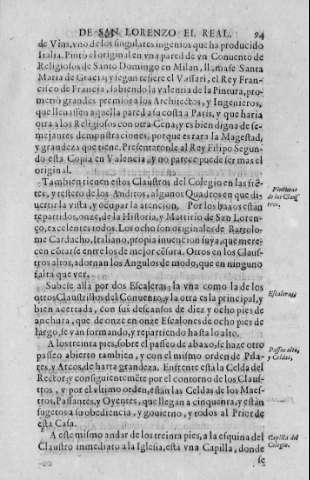 DE SAN LORENZO EL REAL. 94
de Vins, vno de los singulares ingenios que ha producido
Italia. Pintò el original en vna pared de vn Convento de
Religiosos de Santo Domingo en Milan, llamase Santa
Maria de Gracia; y segun refiere el Vassari, el Rey Fran-
cisco de Francia, sabiendo la valentia de la Pintura, pro-
metiò grandes premios a los Architectos, y Ingenieros,
que llevassen aquella pared a su costa a Paris, y que haria
otra a los Religiosos con otra Cena; y es bien digna de se-
mejantes demonstraciones, porque es rara la Magestad,
y grandeza que tiene. Presentaronle al Rey Filipo Segun-
do esta Copia en Valencia, y no parece puede ser mas el
original.
Tambien tienen estos Claustros del Colegio en las frē-
tes, y testero de los Anditos, algunos Quadros en que di-
vertir la vista, y ocupar la atencion. Por los baxos estan
repartidos onze, de la Historia, y Martirio de San Loren-
ço, excelentes todos. Los ocho son originales de Bartolo-
me Cardacho, Italiano, propia invencion suya, que mere-
cen côtarse entre los de mejor cêsura. Otros en los Claus-
tros altos, adornan los Angulos de modo, que en ninguno
falta que ver.
Pinturas
de los Claus
tros.
Subese allà por dos Escaleras; la vna como la de los
otros Claustrillos del Convento, y la otra es la principal, y
bien acertada, con sus descansos de diez y ocho pies de
anchura, que de onze en onze Escalones de ocho pies de
largo, se van formando, y repartiendo hasta lo alto.
Escaleras;
A los treinta pies, sobre el passeo de abaxo, se haze otro
passeo abierto tambien, y con el mismo orden de Pila-
res, y Arcos, de harta grandeza. En frente està la Celda del
Rector; y consiguientemête por el contorno de los Claus-
tros, y por el mismo orden, estàn las Celdas de los Maes-
tros, Passantes, y Oyentes, que llegan a cinquenta, y estàn
sugetos a su obediencia, y govierno, y todos al Prior de
esta Casa.
Passeo alto,
y Celdas,
A este mismo andar de los treinta pies, a la esquina del
Claustro inmediato a la Iglesia, està vna Capilla, donde
se
Capilla del
Colegio.